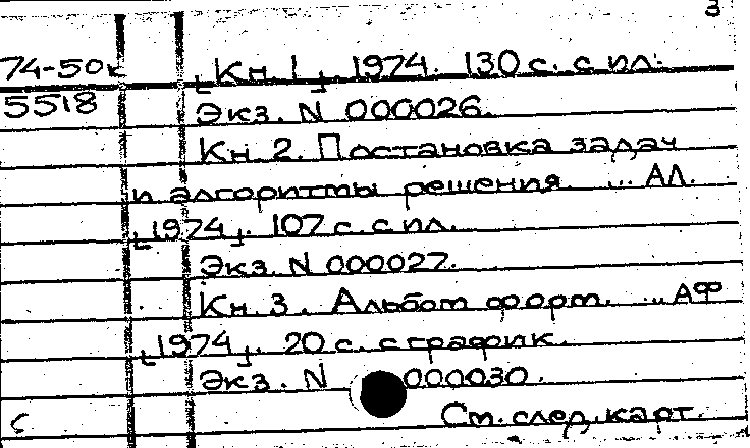 3
74-50к [Кн. 1]. 1974. 130 с. с ил.
5518 Экз. N 000026.
Кн. 2. Постановка задач
и алгоритмы решения. ... АЛ.
[1974]. 107 с. с ил.
Экз. N 000027.
Кн. 3. Альбом форм. ... АФ
[1974]. 20 с. с график.
Экз. N 000030.
См. след. карт.